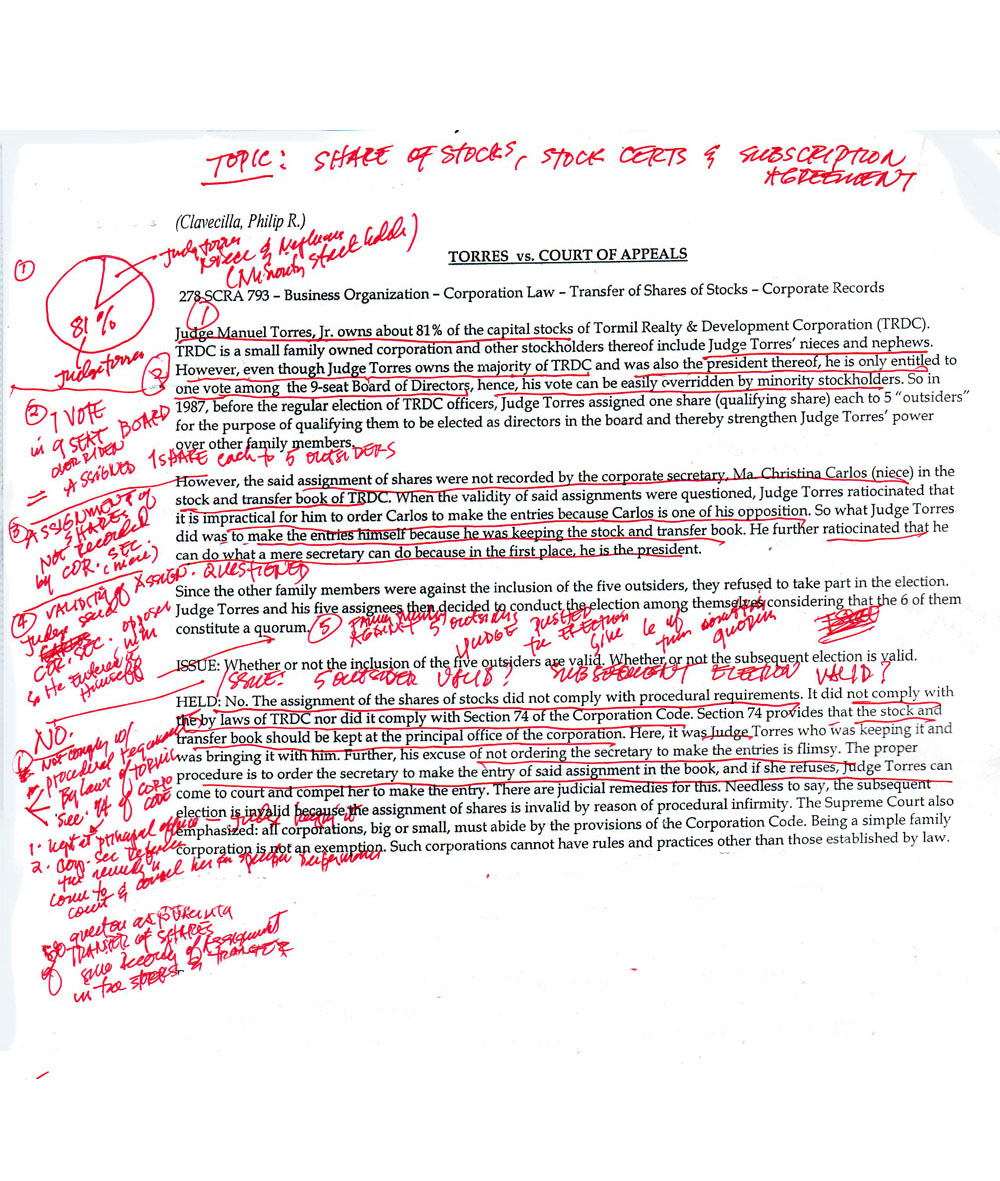 TOPIC: SHARE OF STOCKS, STOCK CERTS & SUBSCRIPTION
AGREEMENT
(Clavecilla, Philip R.)
Judge Torres
Niece & Nephews
(Minority
TORRES vs. COURT OF APPEALS
278 SCRA 793 – Business Organization – Corporation Law – Transfer of Shares of Stocks – Corporate Records
1
81%
Judge Torres
1
Judge Manuel Torres, Jr. owns about 81% of the capital stocks of Tormil Realty & Development Corporation (TRDC).
TRDC is a small family owned corporation and other stockholders thereof include Judge Torres' nieces and nephews.
However, even though Judge Torres owns the majority of TRDC and was also the president thereof, he is only entitled to
one vote among the 9-seat Board of Directors, hence, his vote can be easily overridden by minority stockholders. So in
1987, before the regular election of TRDC officers, Judge Torres assigned one share (qualifying share) each to 5 "outsiders"
for the purpose of qualifying them to be elected as directors in the board and thereby strengthen Judge Torres' power
over other family members.
2
2 1 VOTE
in 9 SEAT BOARD
OVERRIDEN
= ASSIGNED 1 SHARE each to 5 OUTSIDERS
However, the said assignment of shares were not recorded by the corporate secretary, Ma. Christina Carlos (niece) in the
stock and transfer book of TRDC. When the validity of said assignments were questioned, Judge Torres ratiocinated that
it is impractical for him to order Carlos to make the entries because Carlos is one of his opposition. So what Judge Torres
did was to make the entries himself because he was keeping the stock and transfer book. He further ratiocinated that he
can do what a mere secretary can do because in the first place, he is the president.
3 ASSIGNMENT of
SHARES
NOT recorded
by COR. SEC.
(niece)
4 VALIDITY of ASSIGN. QUESTIONED
Judge said
COR. SEC. opposed him
So He Entered it
Himself
Since the other family members were against the inclusion of the five outsiders, they refused to take part in the election.
Judge Torres and his five assignees then decided to conduct the election among themselves considering that the 6 of them
constitute a quorum.
5
AGAINST 5 outsiders
JUDGE
ELECTION
quorum
ISSUE: Whether or not the inclusion of the five outsiders are valid. Whether or not the subsequent election is valid.
ISSUE: 5 OUTSIDER VALID? SUBSEQUENT ELECTION VALID?
HELD: No. The assignment of the shares of stocks did not comply with procedural requirements. It did not comply with
the by laws of TRDC nor did it comply with Section 74 of the Corporation Code. Section 74 provides that the stock and
transfer book should be kept at the principal office of the corporation. Here, it was Judge Torres who was keeping it and
was bringing it with him. Further, his excuse of not ordering the secretary to make the entries is flimsy. The proper
procedure is to order the secretary to make the entry of said assignment in the book, and if she refuses, Judge Torres can
come to court and compel her to make the entry. There are judicial remedies for this. Needless to say, the subsequent
election is invalid because the assignment of shares is invalid by reason of procedural infirmity. The Supreme Court also
emphasized: all corporations, big or small, must abide by the provisions of the Corporation Code. Being a simple family
corporation is not an exemption. Such corporations cannot have rules and practices other than those established by law.
NO.
1 Not comply w/
procedural requirements
By laws of TORMIL
Sec. 74 of CORPO
CODE
1. kept at principal office
2. Corp. Sec
the remedy is
come to
court &
TRANSFER OF SHARES
of
in the